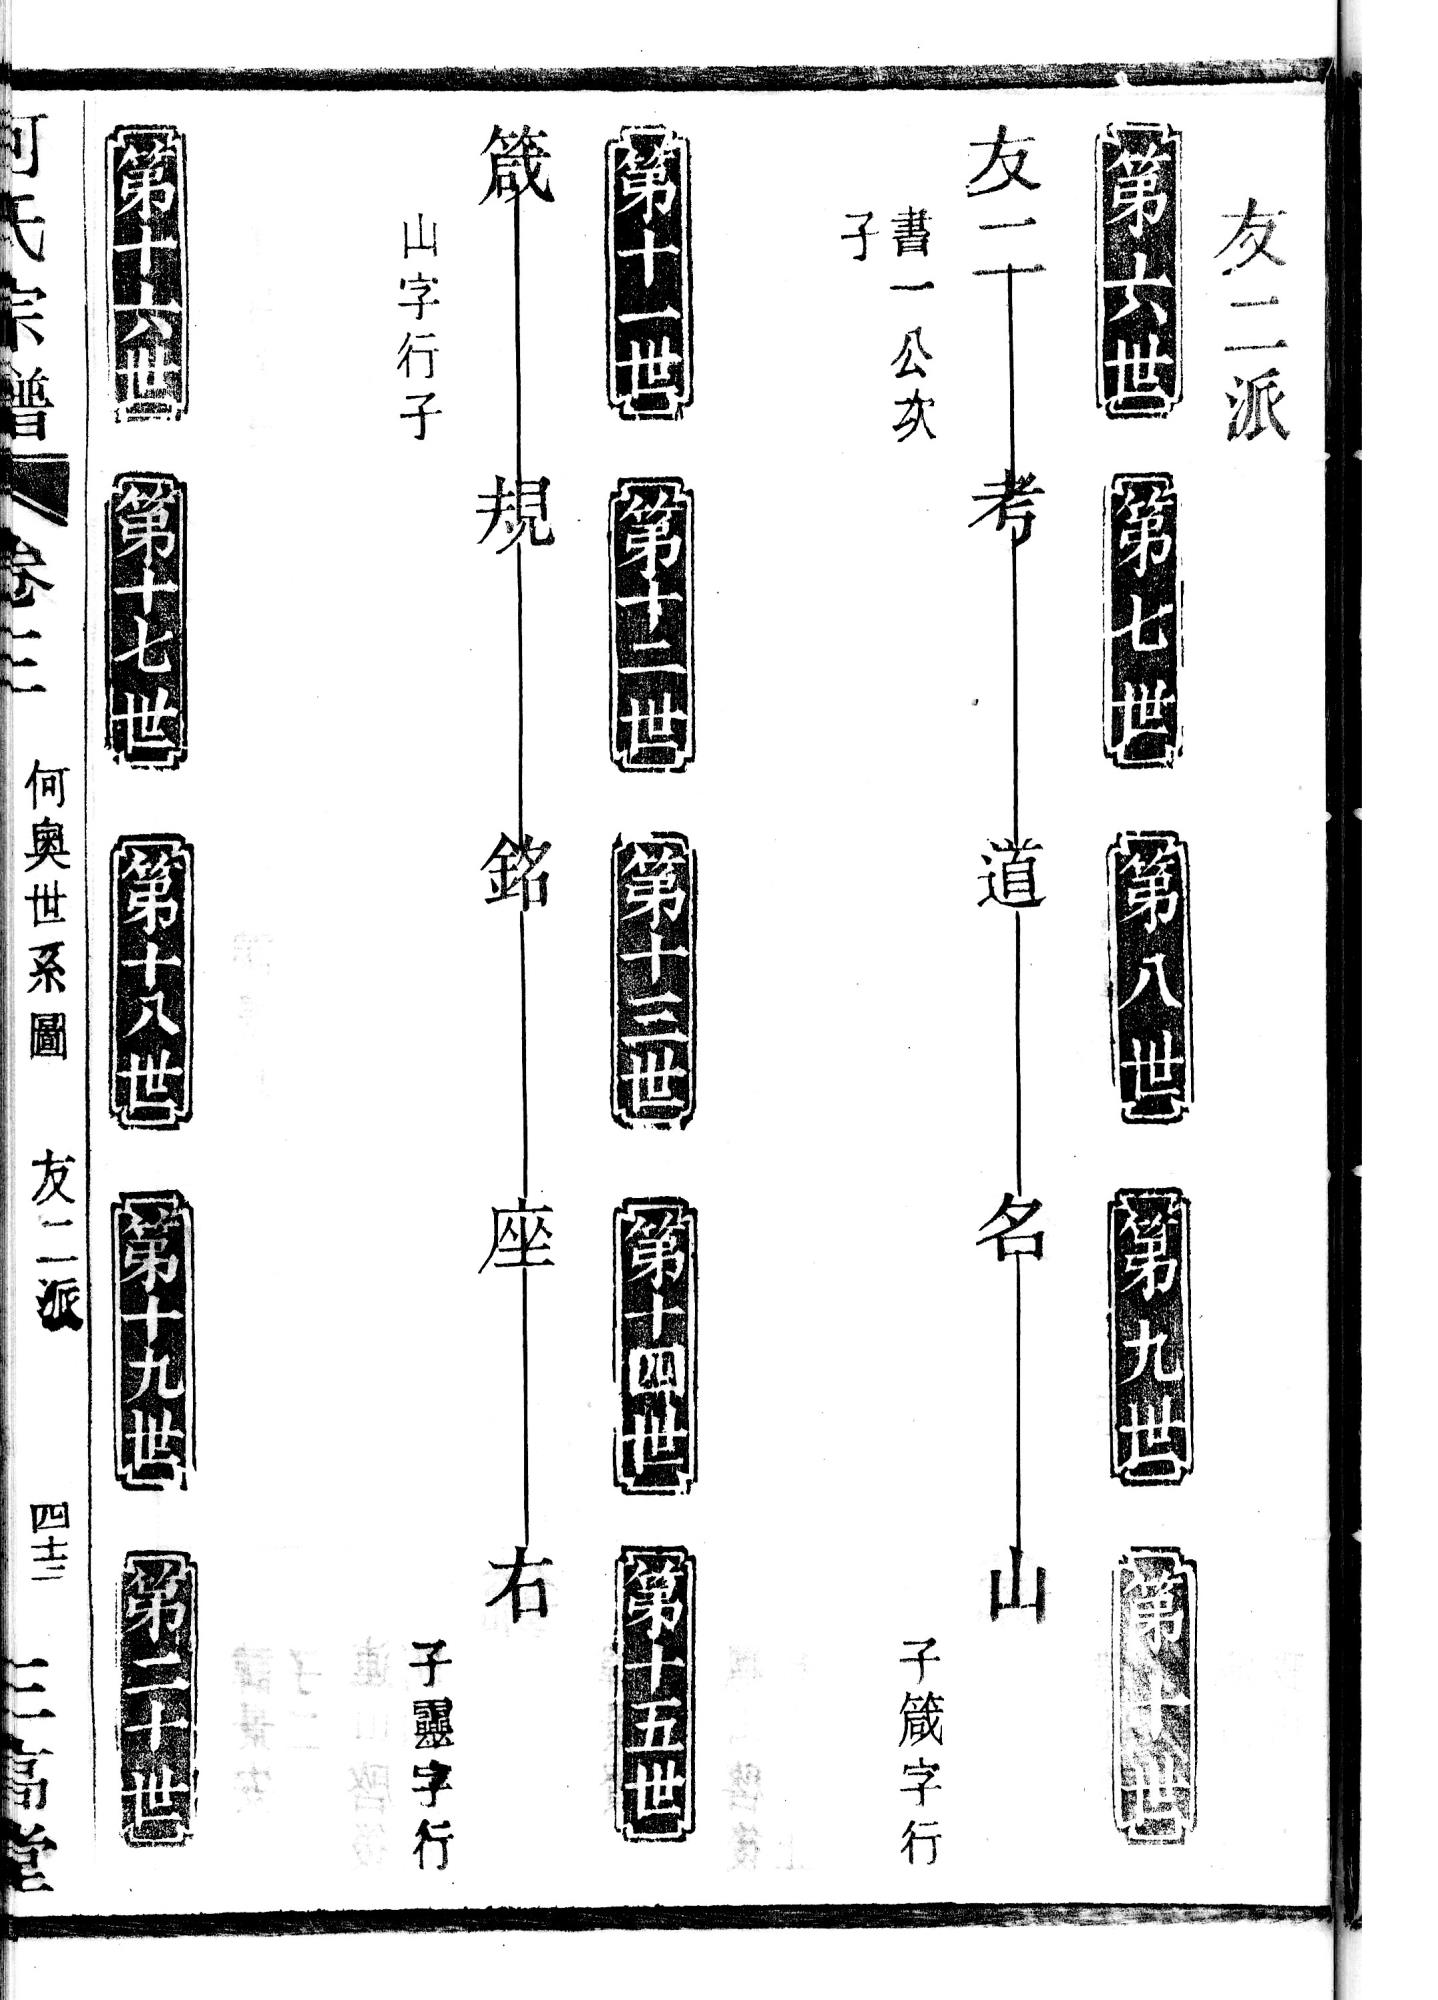 友二派
第六世
第七世
第八世
第九世
第十世
友二
考
道
名
山
書一公次
子
子箴字行
第十一世
第十二世
第十三世
第十四世
第十五世
箴
規
銘
座
右
山字行子
子靈字行
第十六世
第十七世
第十八世
第十九世
第二十世
何氏宗譜
卷三
何奧世系圖
友二派
四十三
三高堂